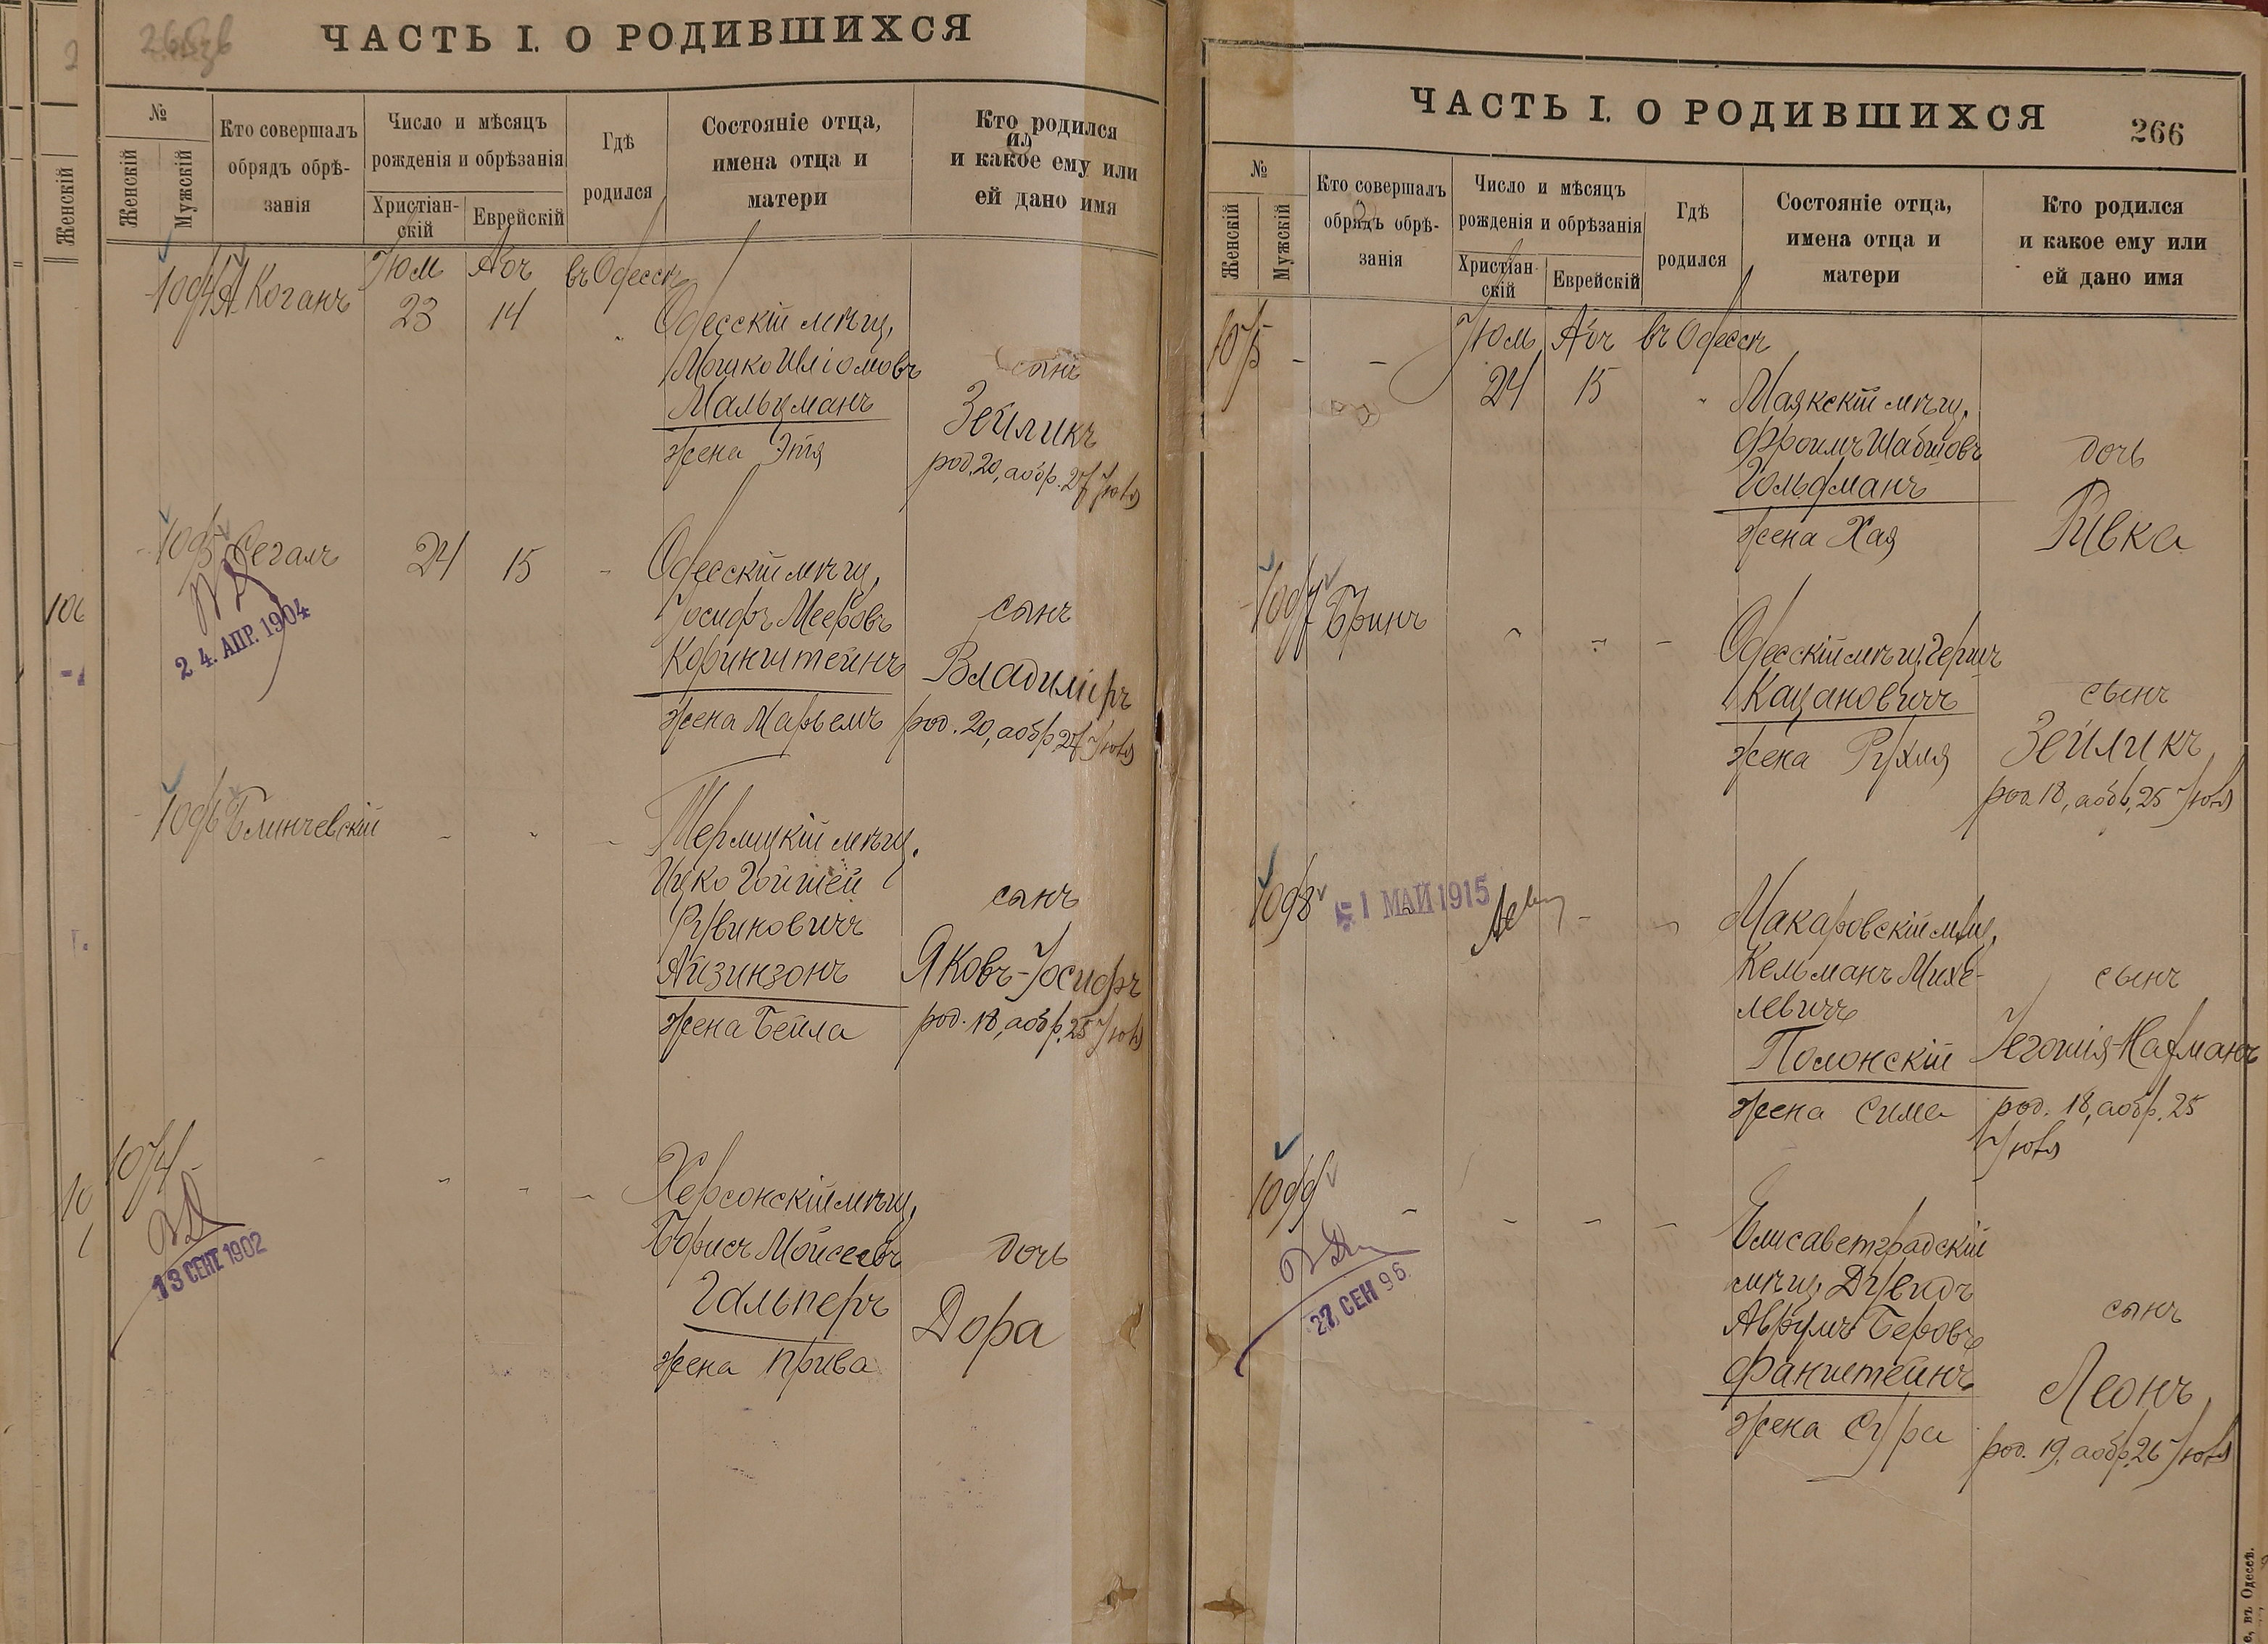 ЧАСТЬ I. О РОДИВШИХСЯ
№
Женскій
Мужскій
Кто совершалъ
обрядъ обрѣ-
занія
Число и мѣсяцъ
рожденія и обрѣзанія
Христіан-
скій
Еврейскій
Гдѣ
родился
Состояніе отца,
имена отца и
матери
Кто родился
и какое ему или
ей дано имя
1094 А. Коганъ Іюл Авъ въ Одессѣ
23 14 Одесскій мѣщ.
Мошко Шліомовъ сынъ
Мальцманъ Зейликъ
жена Этя род. 20, а обр. 27 Іюля
1095 Сегалъ 24 15 Одесскій мѣщ.
24. АПР. 1904
Іосифъ Мееровъ сынъ
Коринштейнъ Владиміръ
жена Марьемъ род. 20, а обр. 27 Іюля
1096 Блинчевскій мѣщ.
Ицко Гойшіей сынъ
Рувиновичъ
Айзинзонъ Яковъ-Іосифъ
жена Бейла род. 18, а обр. 25 Іюля
1074 Херсонскій мѣщ.
13 СЕНТ 1902
Борисъ Мойсеевъ дочь
Гальперъ Дора
жена Прива
ЧАСТЬ I. О РОДИВШИХСЯ
266
№
Женскій
Мужскій
Кто совершалъ
обрядъ обрѣ-
занія
Число и мѣсяцъ
рожденія и обрѣзанія
Христіан-
скій
Еврейскій
Гдѣ
родился
Состояніе отца,
имена отца и
матери
Кто родился
и какое ему или
ей дано имя
1075 - - Іюль Авъ въ Одессѣ
24 15 Маякскій мѣщ.
Фроимъ Шабшовъ дочь
Гольдманъ
жена Хая Ривка
1097 Бринъ
Одесскій мѣщ. Гершъ
Кацановичъ сынъ
жена Рухля Зейликъ
род. 18, а обр. 25 Іюля
1098 1 МАЙ 1915 Макаровскій мѣщ.
Кельманъ Михе- сынъ
левичъ
Полонскій Іегошія-Нахманъ
жена Сима род. 18, а обр. 25
Іюля
1099 Елисаветградскій
27 СЕН 96
мѣщ. Дувидъ
Аврумъ Беровъ сынъ
Файнштейнъ Леонъ
жена Сура род. 19, а обр. 26 Іюля
въ Одессѣ.